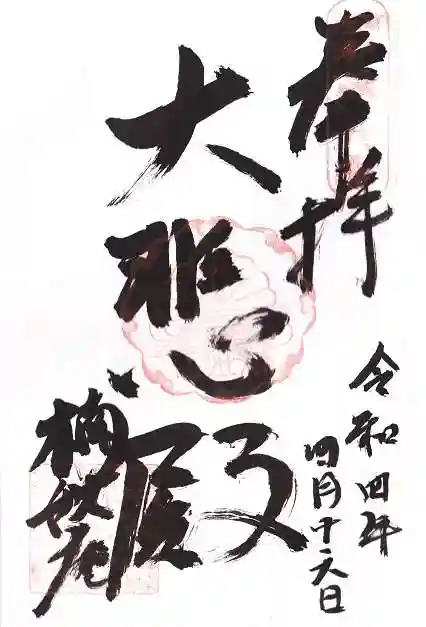 奉拝
令和四年
四月十六日
大悲殿